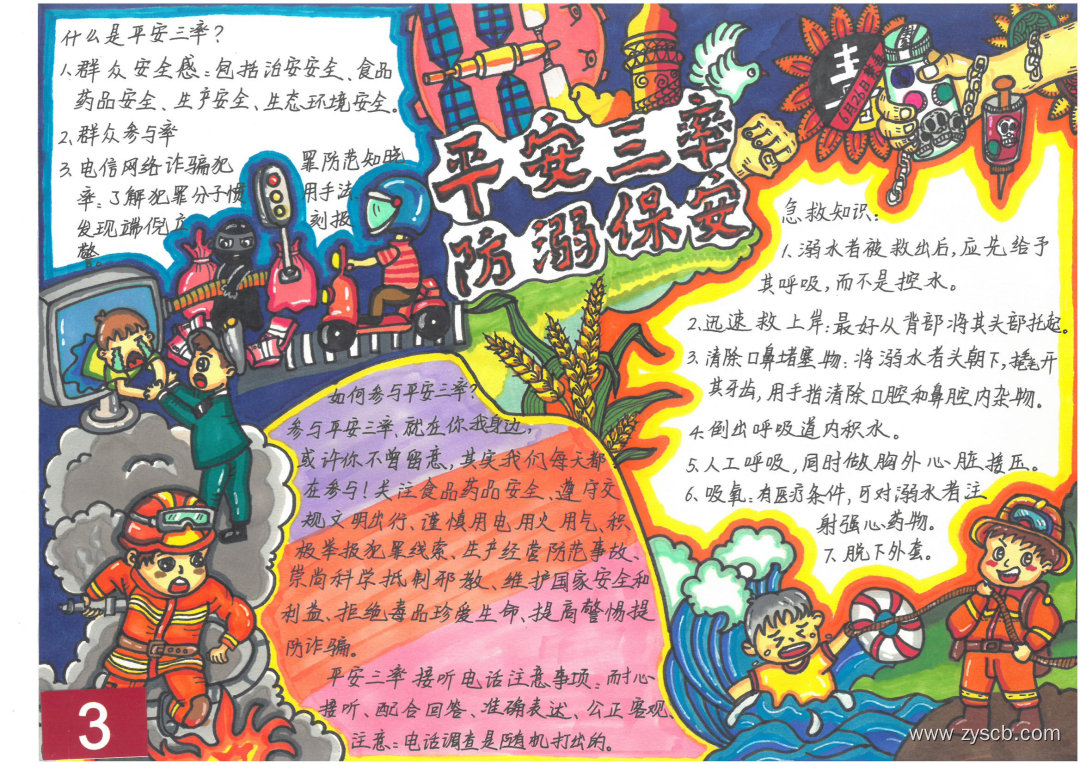 什么是平安三率?
1、群众安全感:包括治安安全、食品
药品安全、生产安全、生态环境安全。
2、群众参与率
3、电信网络诈骗犯罪防范知晓
率:了解犯罪分子惯用手法、
发现端倪立刻报
警。
平安三率
防溺保安
6月26日
急救知识:
1、溺水者被救出后,应先给予
其呼吸,而不是控水。
2、迅速救上岸:最好从背部将其头部托起。
3、清除口鼻堵塞物:将溺水者头朝下,撬开
其牙齿,用手指清除口腔和鼻腔内杂物。
4、倒出呼吸道内积水。
5、人工呼吸,同时做胸外心脏按压。
6、吸氧:有医疗条件,可对溺水者注
射强心药物。
7、脱下外套。
如何参与平安三率?
参与平安三率、就在你我身边,
或许你不曾留意,其实我们每天都
在参与!关注食品药品安全、遵守交
规文明出行、谨慎用电用火用气、积
极举报犯罪线索、生产经营防范事故、
崇尚科学抵制邪教、维护国家安全和
利益、拒绝毒品珍爱生命、提高警惕提
防诈骗。
平安三率接听电话注意事项:耐心
接听、配合回答、准确表述、公正客观、
注意:电话调查是随机打出的。
3
www.zyscb.com